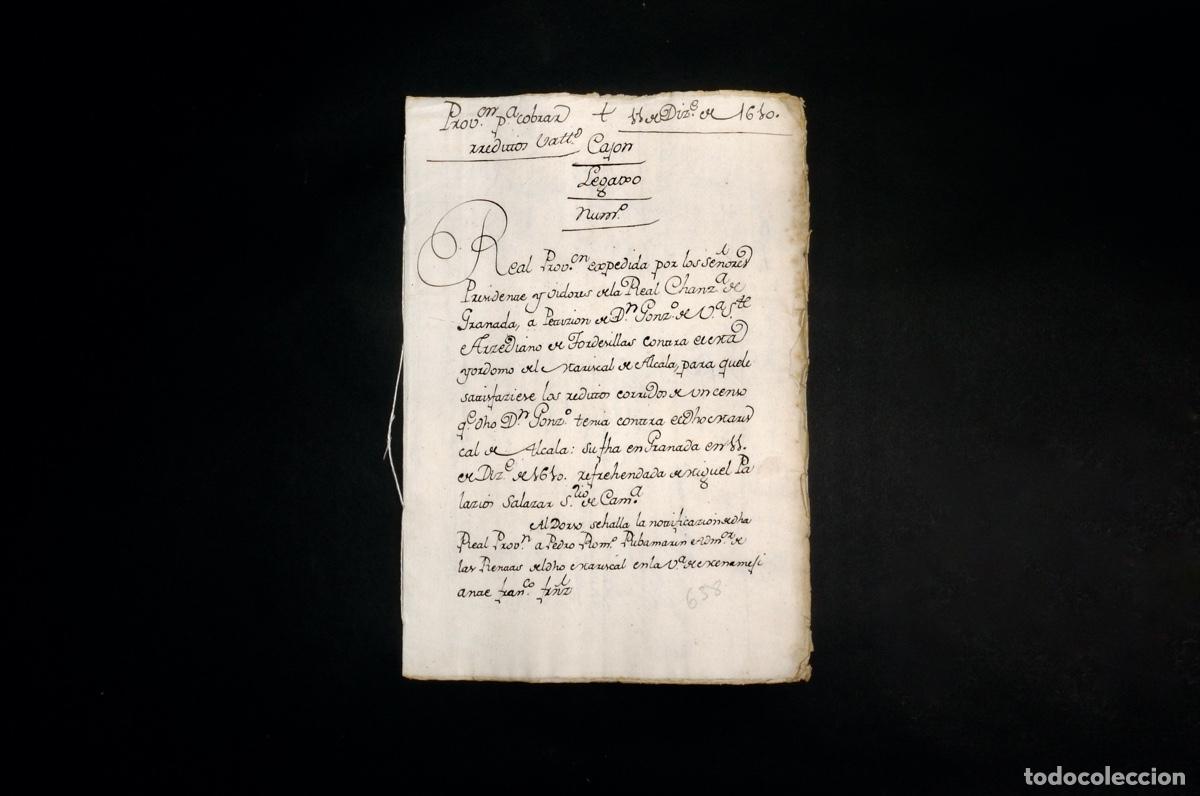 Prov.on p.a cobrar + 11 de Diz.e de 1610.
rreditos Vall.o
Cajon
Legaxo
Num.o
Real Prov.on expedida por los Señores
Presidente y oidores de la Real Chanz.a de
Granada, a Petizion de D.n Gonz.o de V.a S.te
Arzediano de Tordesillas contra el Ma
yordomo del Mariscal de Alcala, para que le
satisfaziese los reditos corridos de un censo
q.e dho D.n Gonz.o tenia contra el dho Maris
cal de Alcala: su fha en Granada en 11.
de Diz.e de 1610. refrehendada de Miguel Pa
lazios Salazar S.rio de Cam.a
Al Dorso se halla la notificazion de dha
Real Prov.n a Pedro Rom.o Admor de
las Rentas del dho Mariscal en la V.a de
ante fran.co frñz
638
todocoleccion